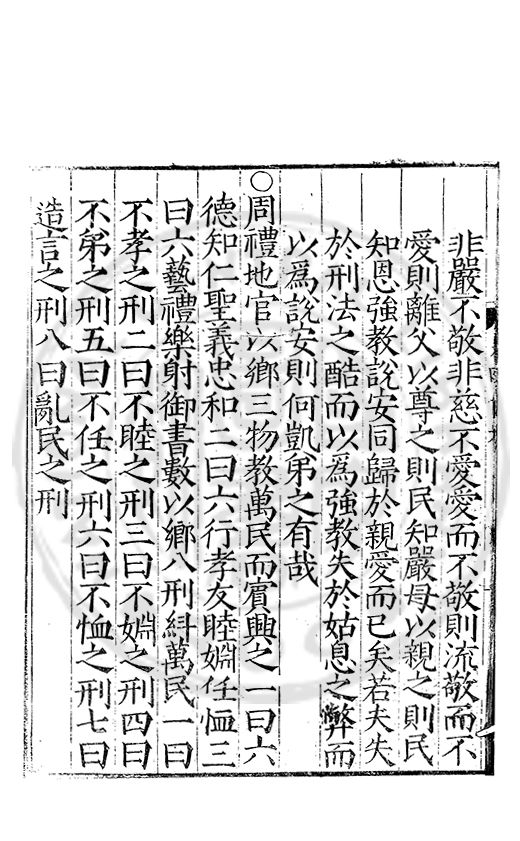 非嚴不敬非慈不愛愛而不敬則流敬而不
愛則離父以尊之則民知嚴母以親之則民
知恩強教說安同歸於親愛而已矣若夫失
於刑法之酷而以爲強教失於姑息之弊而
以爲說安則何凱弟之有哉
○周禮地官以鄉三物教萬民而賓興之一曰六
德知仁聖義忠和二曰六行孝友睦婣任恤三
曰六藝禮樂射御書數以鄉八刑糾萬民一曰
不孝之刑二曰不睦之刑三曰不婣之刑四曰
不弟之刑五曰不任之刑六曰不恤之刑七曰
造言之刑八曰亂民之刑